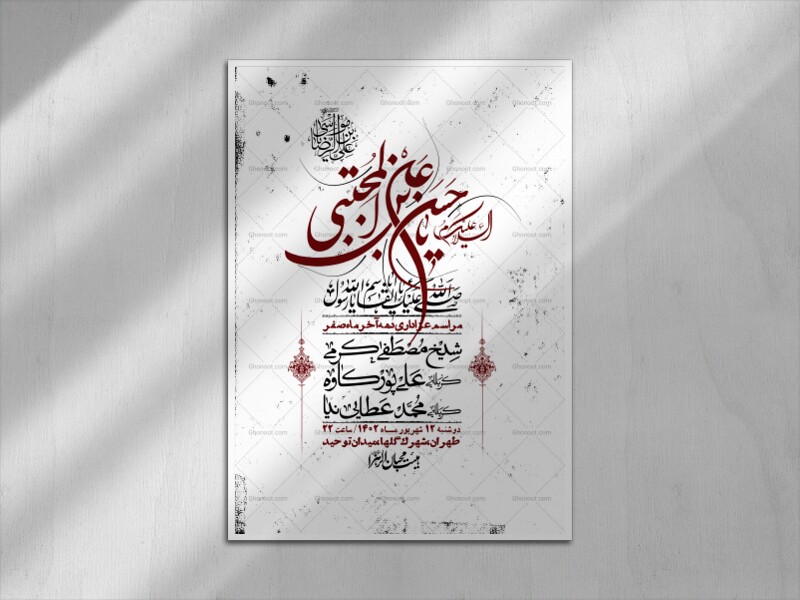 علی بن موسی الرضا
السلام علیکم
یا حسن بن علی المجتبی
صلی الله علیک یا اباالقاسم یا رسول الله
مراسم عزاداری دهه آخر ماه صفر
شیخ مصطفی کرمی
کربلایی علی پورکاوه
کربلایی محمد عطایی نیا
دوشنبه ۱۲ شهریور ماه ۱۴۰۲ / ساعت ۲۲
طهران، شهرک گلها، میدان توحید
بیت محبان الزهرا
Ghonoot.com